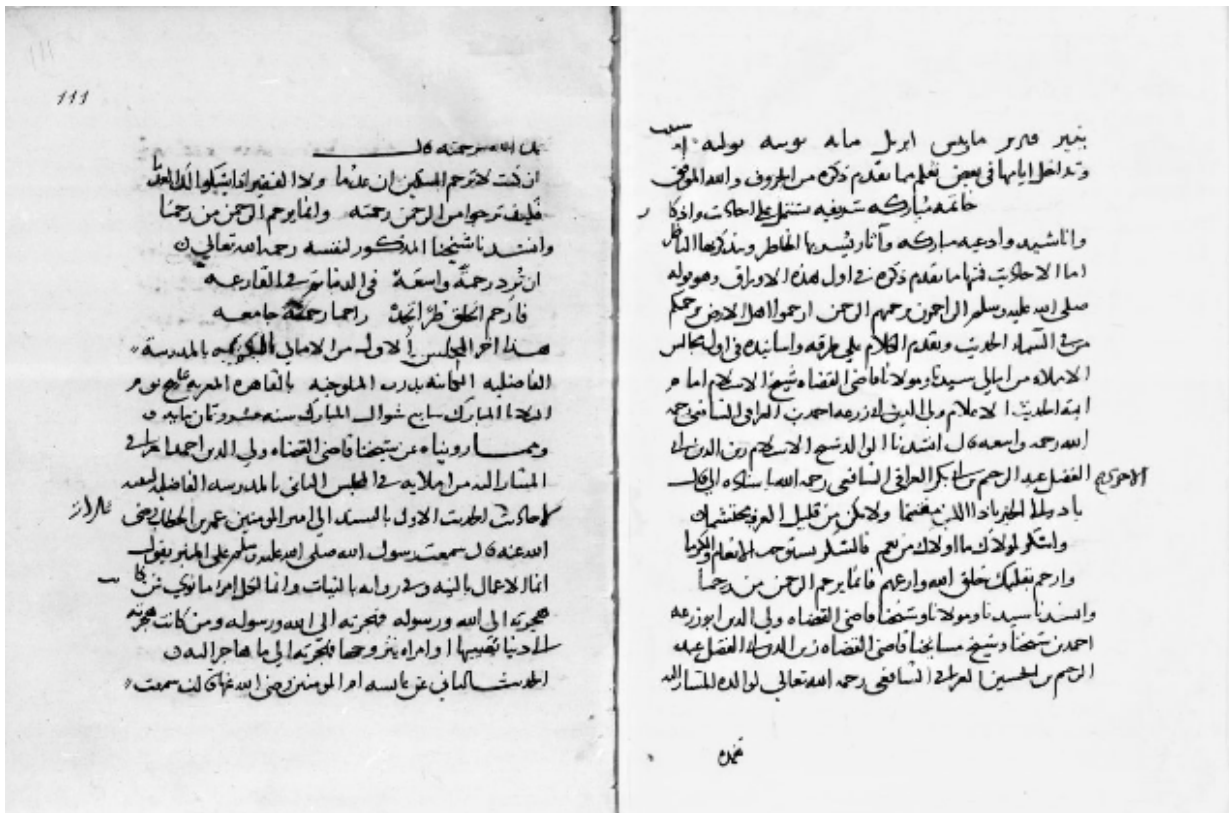 بغير فبرير مارس ابريل مايه يونيه يوليه
وتداخل ايامها في بعض تعلم مما تقدم ذكره من الحروف والله الموفق
خاتمة مباركه شريفه تشتمل على احاديث واذكار
واناشيد وادعيه مباركه وآثار يسر بها الخاطر ويتذكر بها الناظر
اما الاحاديث فمنها ما تقدم ذكره في اول هذه الاوراق وهو قوله
صلى الله عليه وسلم الراحمون يرحمهم الرحمن ارحموا اهل الارض يرحمكم
من في السماء الحديث وتقدم الكلام على طرقه واسانيده في اول مجالس
الاملاء من امالي سيدنا ومولانا قاضي القضاه شيخ الاسلام امام
ايمة الحديث الاعلام ولي الدين ابي زرعه احمد بن العراقي الشافعي رحمه
الله رحمه واسعه قال انشدنا الوالد شيخ الاسلام زين الدين ابي
الفضل عبد الرحيم بن ابي بكر العراقي الشافعي رحمه الله باسناده الى قال
بادر الى الخير يا ذا اللب مغتنما ولا تكن من قليل العرف محتشما
واشكر لمولاك ما اولاك من نعم فالشكر يستوجب الانعام والكرما
وارحم بقلبك خلق الله وارعهم فانما يرحم الرحمن من رحما
وانشدنا سيدنا ومولانا وشيخنا قاضي القضاه ولي الدين ابو زرعه
احمد بن شيخنا وشيخ مشايخنا قاضي القضاه زين الدين ابي الفضل عبد
الرحيم بن الحسين العراقي الشافعي رحمه الله تعالى لوالده المشار اليه
111
الله برحمته قال
ان كنت لا ترحم المسكين ان عدما ولا الفقير اذا يشكو لك العدما
فكيف ترجو من الرحمن رحمته وانما يرحم الرحمن من رحما
وانشدنا شيخنا المذكور لنفسه رحمه الله تعالى
ان ترد رحمة واسعة في الدنيا وفي القارعه
فارحم الخلق طرا تجد راحما رحمته جامعه
هذا آخر المجلس الاول من الامالي بالمدرسة
الفاضليه الكائنه بدرب الملوخيه بالقاهره المعزيه في يوم
الثلاثا المبارك سابع شوال المبارك سنه عشر وثمان مايه
ومما رويناه عن شيخنا قاضي القضاه ولي الدين احمد العراقي
المشار اليه من املايه في المجلس الثاني بالمدرسه الفاضليه
احاديث الحديث الاول بالسند الى امير المومنين عمر بن الخطاب رضي
الله عنه قال سمعت رسول الله صلى الله عليه وسلم على المنبر يقول
انما الاعمال بالنيه وفي روايه بالنيات وانما لكل امرئ ما نوى فمن كانت
هجرته الى الله ورسوله فهجرته الى الله ورسوله ومن كانت هجرته
الى دنيا يصيبها او امراه يتزوجها فهجرته الى ما هاجر اليه
الحديث الثاني عن عائشه ام المومنين رضي الله عنها قالت سمعت